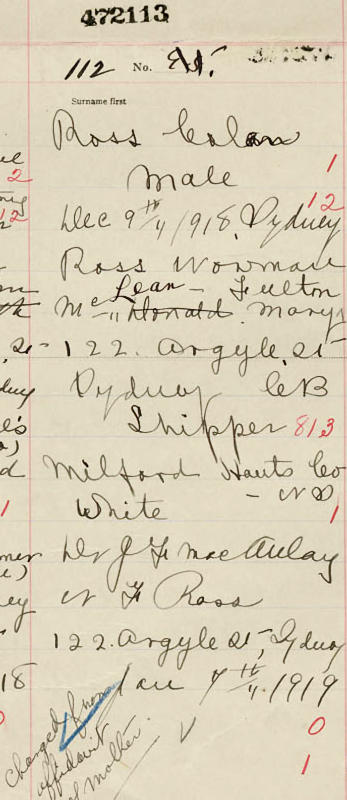 472113
112 No. St.
Surname first
Ross Colon
1
Male
12
Dec 9th/1918, Sydney
Ross Norman
Lean - Fulton
Mc " Donald Mary
122. Argyle St
Sydney CB
Shipper 813
Milford Hants Co
- N S
White 1
Dr J F MacAulay
N F Ross
122. Argyle St, Sydney
Jan 7th/1919
0
1
Changed from
affidavit
of Mother.